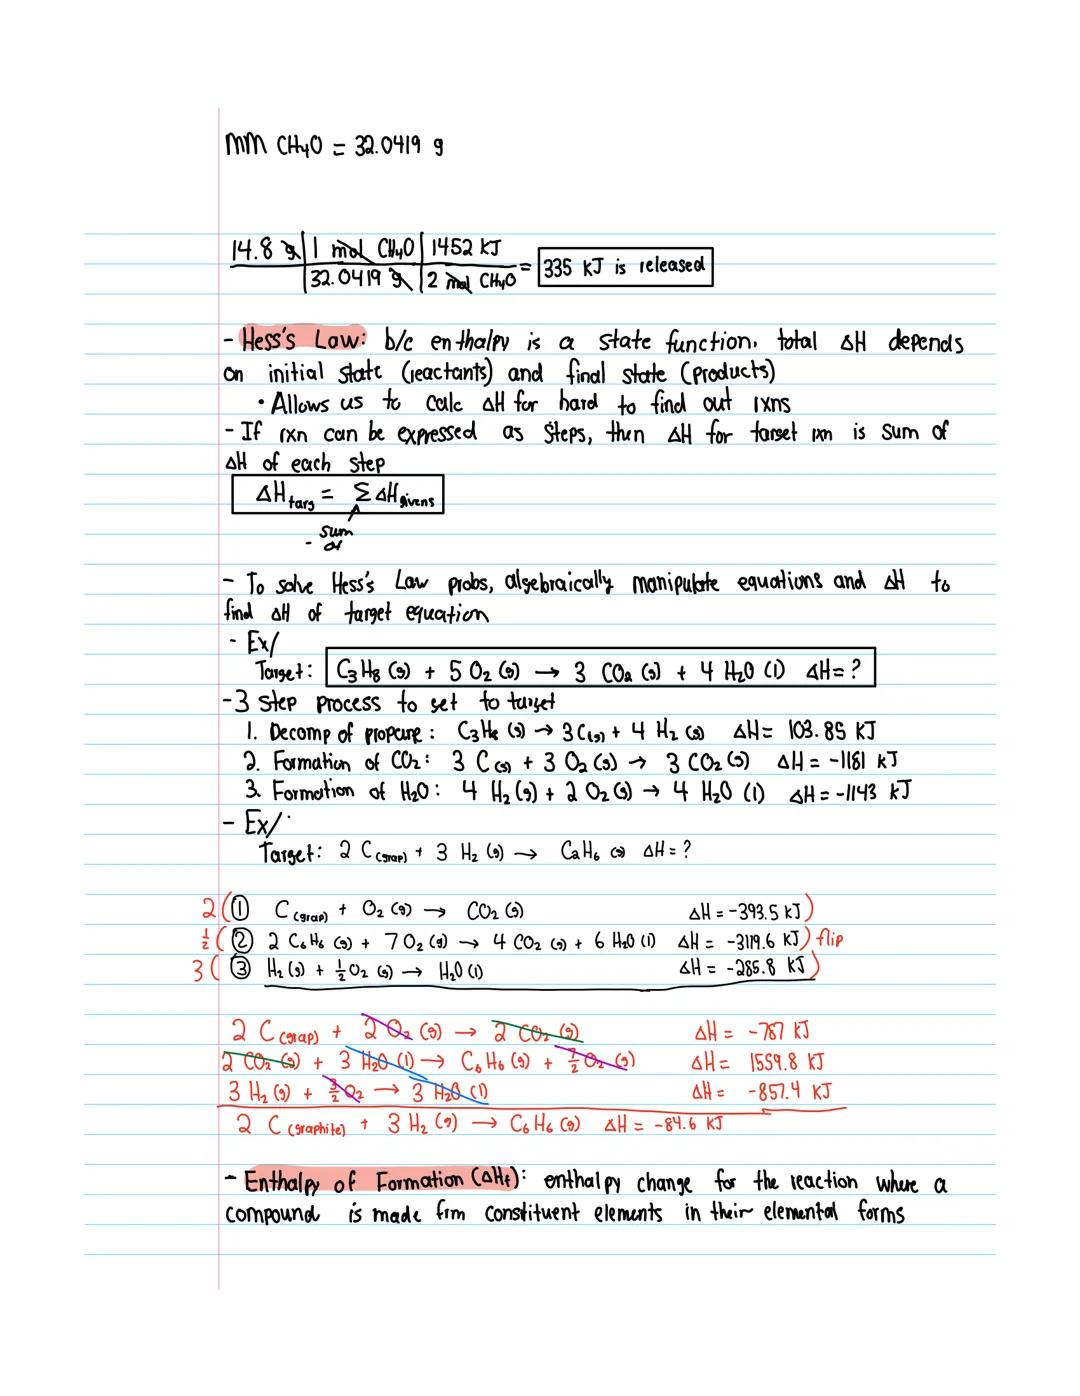 MM CH₄O = 32.0419 g
14.8 g | 1 mol CH₄O | 1452 KJ
| 32.0419 g | 2 mol CH₄O = 335 KJ is released
- Hess's Law: b/c enthalpy is a state function, total ΔH depends
on initial state (reactants) and final state (products)
• Allows us to calc ΔH for hard to find out rxns
- If rxn can be expressed as steps, then ΔH for target rxn is sum of
ΔH of each step
ΔH targ = Σ ΔH givens
- sum
of
- To solve Hess's Law probs, algebraically manipulate equations and ΔH to
find ΔH of target equation
- Ex/
Target: C₃H₈ (g) + 5 O₂ (g) → 3 CO₂ (g) + 4 H₂O (l) ΔH = ?
- 3 step process to get to target
1. Decomp of propane: C₃H₈ (g) → 3 C(s) + 4 H₂ (g) ΔH = 103.85 KJ
2. Formation of CO₂: 3 C (s) + 3 O₂ (g) → 3 CO₂ (g) ΔH = -1181 KJ
3. Formation of H₂O: 4 H₂ (g) + 2 O₂ (g) → 4 H₂O (l) ΔH = -1143 KJ
- Ex/
Target: 2 C (grap) + 3 H₂ (g) → C₂H₆ (g) ΔH = ?
2( ① C (grap) + O₂ (g) → CO₂ (g) ΔH = -393.5 KJ )
½( ② 2 C₆H₆ (g) + 7 O₂ (g) → 4 CO₂ (g) + 6 H₂O (l) ΔH = -3119.6 KJ ) flip
3( ③ H₂ (g) + ½ O₂ (g) → H₂O (l) ΔH = -285.8 KJ )
2 C (grap) + 2 O₂ (g) → 2 CO₂ (g) ΔH = -787 KJ
2 CO₂ (g) + 3 H₂O (l) → C₆H₆ (g) + 7/2 O₂ (g) ΔH = 1559.8 KJ
3 H₂ (g) + 3/2 O₂ → 3 H₂O (l) ΔH = -857.4 KJ
2 C (graphite) + 3 H₂ (g) → C₆H₆ (g) ΔH = -84.6 KJ
- Enthalpy of Formation (ΔHf): enthalpy change for the reaction where a
compound is made frm constituent elements in their elemental forms